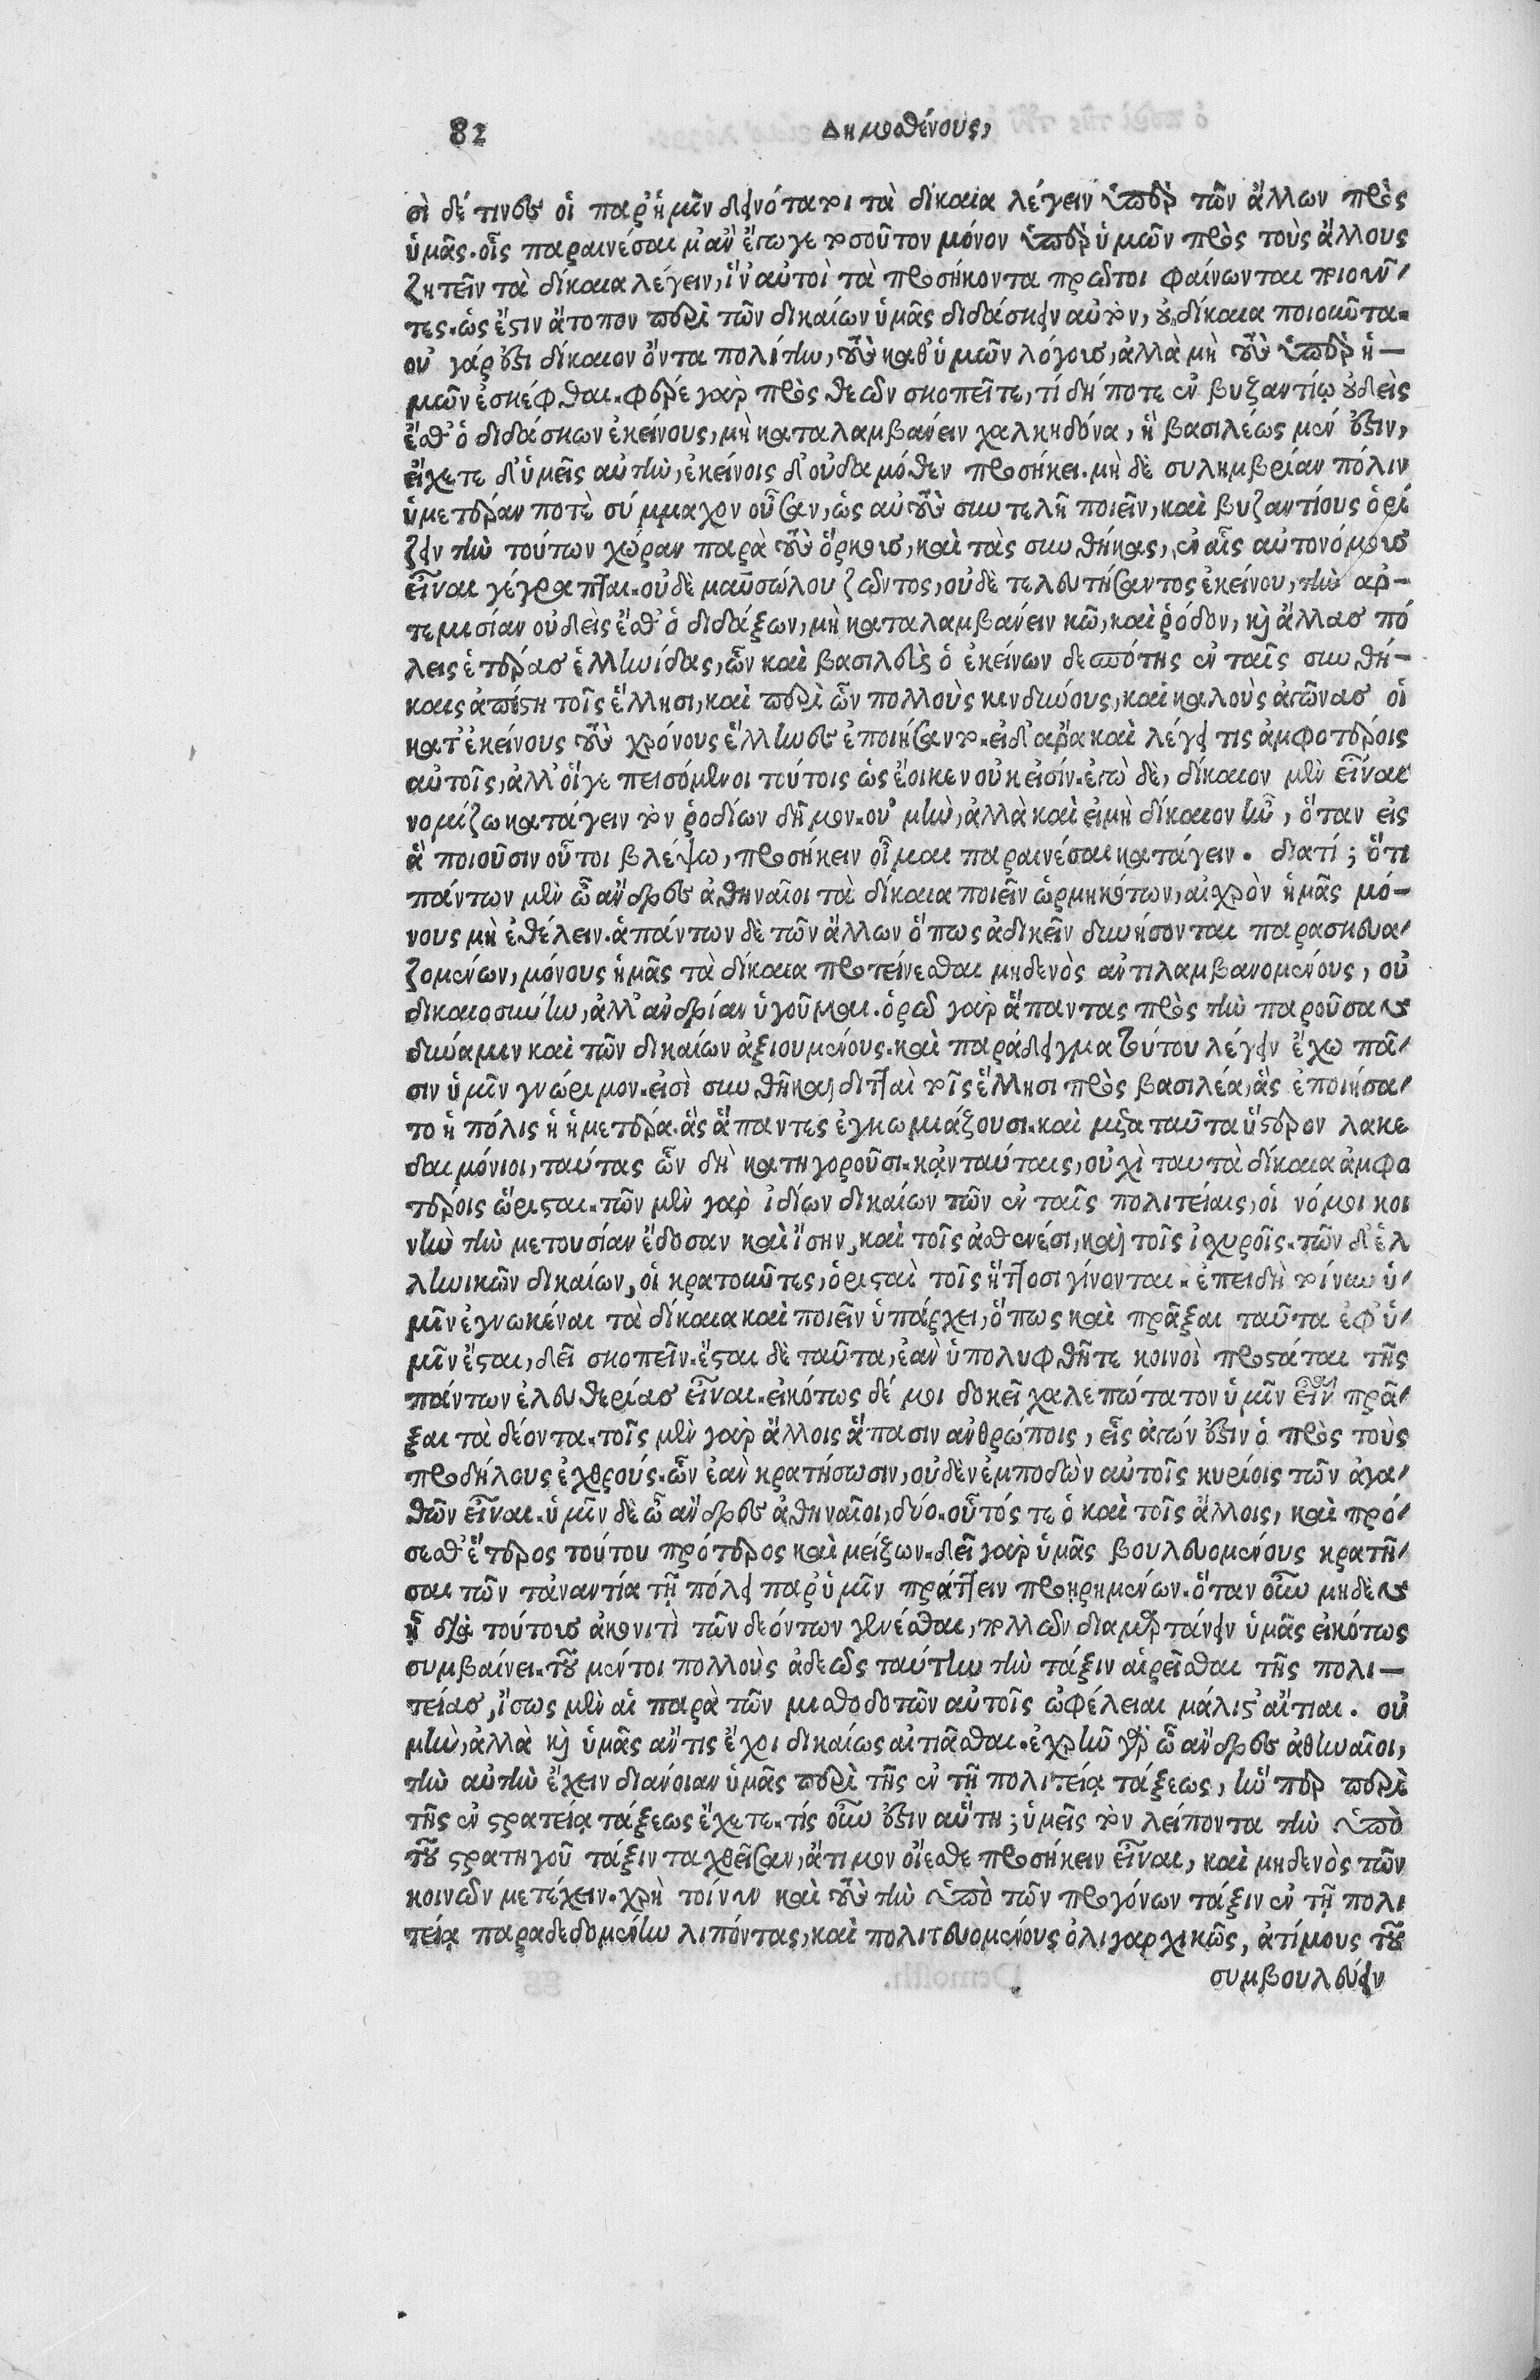 82
Δημοσθένους,
σὶ δέ τινες οἱ παρ' ἡμῖν δεινότατοι τὰ δίκαια λέγειν ὑπὲρ τῶν ἄλλων πρὸς
ὑμᾶς. οἷς παραινέσαιμ' ἂν ἔγωγε τοσοῦτον μόνον ὑπὲρ ὑμῶν πρὸς τοὺς ἄλλους
ζητεῖν τὰ δίκαια λέγειν, ἵν' αὐτοὶ τὰ προσήκοντα πρῶτοι φαίνωνται ποιοῦν-
τες. ὡς ἔστιν ἄτοπον περὶ τῶν δικαίων ὑμᾶς διδάσκειν αὐτὸν, οὐ δίκαια ποιοῦντα.
οὐ γάρ ἐστι δίκαιον ὄντα πολίτην, τοὺς καθ' ὑμῶν λόγους, ἀλλὰ μὴ τοὺς ὑπὲρ ἡ-
μῶν ἐσκέφθαι. φέρε γὰρ πρὸς θεῶν σκοπεῖτε, τί δή ποτε ἐν βυζαντίῳ οὐδεὶς
ἔσθ' ὁ διδάσκων ἐκείνους, μὴ καταλαμβάνειν χαλκηδόνα, ἣ βασιλέως μέν ἐστιν,
εἴχετε δ' ὑμεῖς αὐτὴν, ἐκείνοις δ' οὐδαμόθεν προσήκει. μὴ δὲ συλημβρίαν πόλιν
ὑμετέραν ποτὲ σύμμαχον οὖσαν, ὡς αὐτοὺς συντελῆ ποιεῖν, καὶ βυζαντίους ὁρί
ζειν τὴν τούτων χώραν παρὰ τοὺς ὅρκους, καὶ τὰς συνθήκας, ἐν αἷς αὐτονόμους
εἶναι γέγραπται. οὐδὲ μαυσώλου ζῶντος, οὐδὲ τελευτήσαντος ἐκείνου, τὴν ἀρ-
τεμισίαν οὐδεὶς ἔσθ' ὁ διδάξων, μὴ καταλαμβάνειν κῶ, καὶ ῥόδον, καὶ ἄλλας πό
λεις ἑτέρας ἑλληνίδας, ὧν καὶ βασιλεὺς ὁ ἐκείνων δεσπότης ἐν ταῖς συνθή-
καις ἀπέστη τοῖς ἕλλησι, καὶ περὶ ὧν πολλοὺς κινδύνους, καὶ καλοὺς ἀγῶνας οἱ
κατ' ἐκείνους τοὺς χρόνους ἕλληνες ἐποιήσαντο. εἰ δ' ἄρα καὶ λέγει τις ἀμφοτέροις
αὐτοῖς, ἀλλ' οἵ γε πεισόμενοι τούτοις ὡς ἔοικεν οὐκ εἰσίν. ἐγὼ δὲ, δίκαιον μὲν εἶναι
νομίζω κατάγειν τὸν ῥοδίων δῆμον. οὐ μὴν, ἀλλὰ καὶ εἰ μὴ δίκαιον ἦν, ὅταν εἰς
ἃ ποιοῦσιν οὗτοι βλέψω, προσήκειν οἶμαι παραινέσαι κατάγειν. διατί; ὅτι
πάντων μὲν ὦ ἄνδρες ἀθηναῖοι τὰ δίκαια ποιεῖν ὡρμηκότων, αἰσχρὸν ἡμᾶς μό-
νους μὴ ἐθέλειν. ἁπάντων δὲ τῶν ἄλλων ὅπως ἀδικεῖν δυνήσονται παρασκευα-
ζομένων, μόνους ἡμᾶς τὰ δίκαια προτείνεσθαι μηδενὸς ἀντιλαμβανομένους, οὐ
δικαιοσύνην, ἀλλ' ἀνδρίαν ἡγοῦμαι. ὁρῶ γὰρ ἅπαντας πρὸς τὴν παροῦσαν
δύναμιν καὶ τῶν δικαίων ἀξιουμένους. καὶ παράδειγμα τούτου λέγειν ἔχω πᾶ-
σιν ὑμῖν γνώριμον. εἰσὶ συνθῆκαι διτταὶ τοῖς ἕλλησι πρὸς βασιλέα, ἃς ἐποιήσα-
το ἡ πόλις ἡ ἡμετέρα. ἃς ἅπαντες ἐγκωμιάζουσι. καὶ μετὰ ταῦτα ὕστερον λακε
δαιμόνιοι, ταύτας ὧν δὴ κατηγοροῦσι. κἀν ταύταις, οὐχὶ ταυτὰ δίκαια ἀμφο
τέροις ὥρισται. τῶν μὲν γὰρ ἰδίων δικαίων τῶν ἐν ταῖς πολιτείαις, οἱ νόμοι κοι
νὴν τὴν μετουσίαν ἔδοσαν καὶ ἴσην, καὶ τοῖς ἀσθενέσι, καὶ τοῖς ἰσχυροῖς. τῶν δ' ἑλ
ληνικῶν δικαίων, οἱ κρατοῦντες, ὁρισταὶ τοῖς ἥττοσι γίνονται. ἐπειδὴ τοίνυν ὑ-
μῖν ἐγνωκέναι τὰ δίκαια καὶ ποιεῖν ὑπάρχει, ὅπως καὶ πρᾶξαι ταῦτα ἐφ' ὑ-
μῖν ἔσται, δεῖ σκοπεῖν. ἔσται δὲ ταῦτα, ἐὰν ὑπολυφθῆτε κοινοὶ προστάται τῆς
πάντων ἐλευθερίας εἶναι. εἰκότως δέ μοι δοκεῖ χαλεπώτατον ὑμῖν εἶναι πρᾶ-
ξαι τὰ δέοντα. τοῖς μὲν γὰρ ἄλλοις ἅπασιν ἀνθρώποις, εἷς ἀγών ἐστιν ὁ πρὸς τοὺς
προδήλους ἐχθρούς. ὧν ἐὰν κρατήσωσιν, οὐδὲν ἐμποδὼν αὐτοῖς κυρίοις τῶν ἀγα-
θῶν εἶναι. ὑμῖν δὲ ὦ ἄνδρες ἀθηναῖοι, δύο. οὗτός τε ὁ καὶ τοῖς ἄλλοις, καὶ πρό-
σεσθ' ἕτερος τούτου πρότερος καὶ μείζων. δεῖ γὰρ ὑμᾶς βουλευομένους κρατῆ-
σαι τῶν τἀναντία τῇ πόλει παρ' ὑμῖν πράττειν προῃρημένων. ὅταν οὖν μηδὲν
ᾖ διὰ τούτους ἀκονιτὶ τῶν δεόντων γενέσθαι, πολλῶν διαμαρτάνειν ὑμᾶς εἰκότως
συμβαίνει. τοῦ μέντοι πολλοὺς ἀδεῶς ταύτην τὴν τάξιν αἱρεῖσθαι τῆς πολι-
τείας, ἴσως μὲν αἱ παρὰ τῶν μισθοδοτῶν αὐτοῖς ὠφέλειαι μάλιστ' αἴτιαι. οὐ
μὴν, ἀλλὰ καὶ ὑμᾶς ἄν τις ἔχοι δικαίως αἰτιᾶσθαι. ἐχρῆν γὰρ ὦ ἄνδρες ἀθηναῖοι,
τὴν αὐτὴν ἔχειν διάνοιαν ὑμᾶς περὶ τῆς ἐν τῇ πολιτείᾳ τάξεως, ἥν περ περὶ
τῆς ἐν στρατείᾳ τάξεως ἔχετε. τίς οὖν ἐστιν αὕτη; ὑμεῖς τὸν λείποντα τὴν ὑπὸ
τοῦ στρατηγοῦ τάξιν ταχθεῖσαν, ἄτιμον οἴεσθε προσήκειν εἶναι, καὶ μηδενὸς τῶν
κοινῶν μετέχειν. χρὴ τοίνυν καὶ τοὺς τὴν ὑπὸ τῶν προγόνων τάξιν ἐν τῇ πολι
τείᾳ παραδεδομένην λιπόντας, καὶ πολιτευομένους ὀλιγαρχικῶς, ἀτίμους τοῦ
συμβουλεύειν